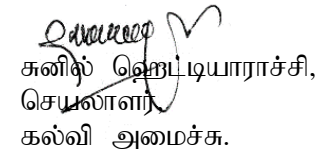 சுனில் ஹெட்டியாராச்சி,
செயலாளர்,
கல்வி அமைச்சு.